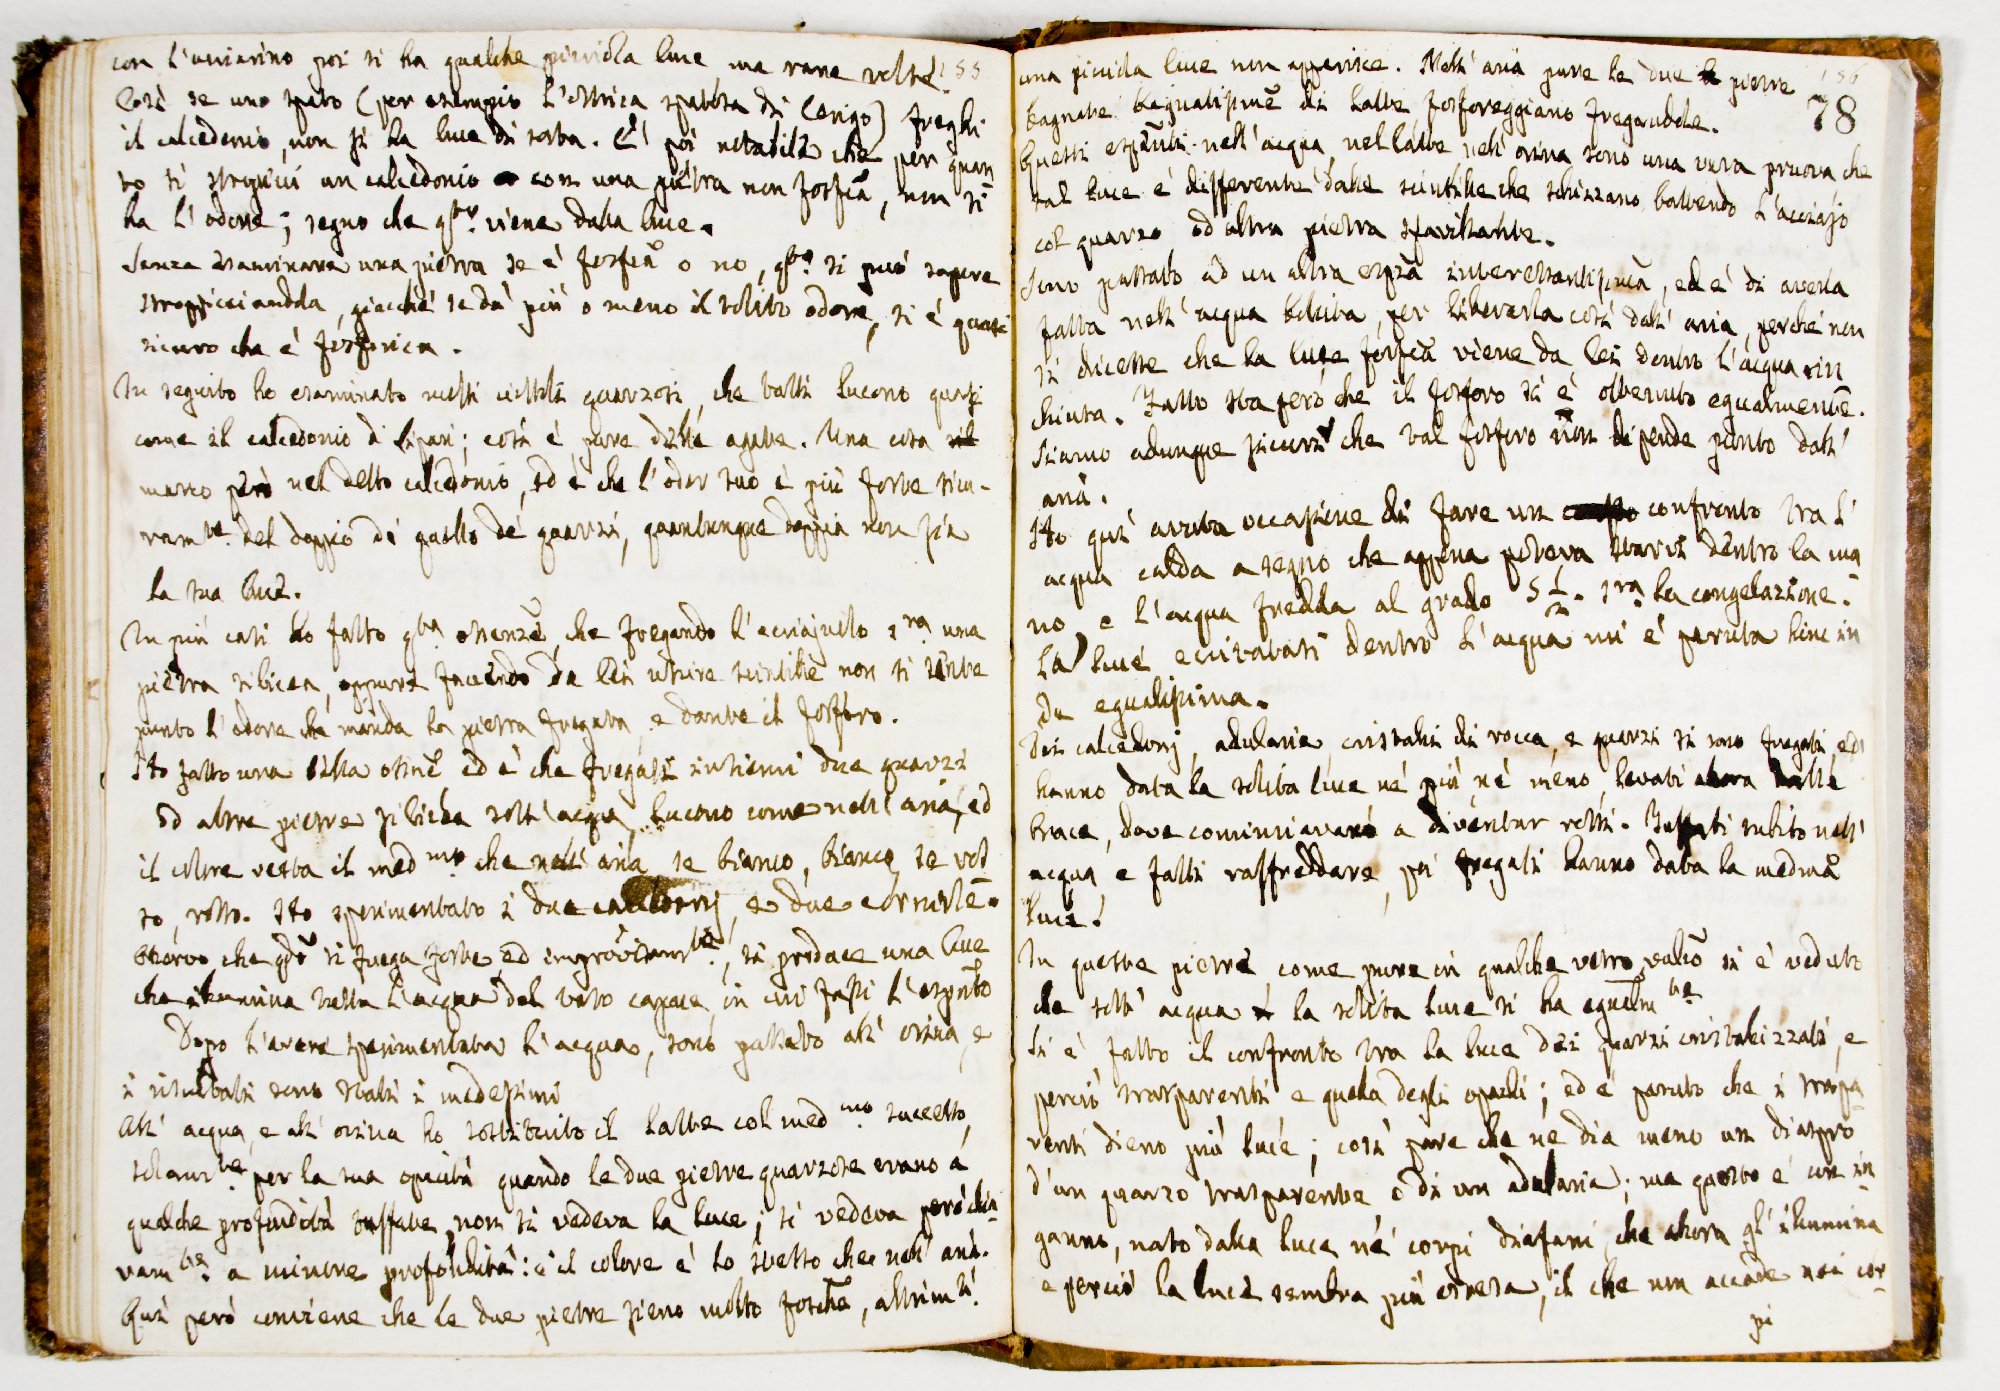 con l'acciarino poi si ha qualche picciola luce, ma rare volte. 155
Così se uno spato (per esempio l'ostrica spatosa di Cerigo) freghi
il calcedonio, non si ha luce di sorta. È poi notabile che per quan
to si stropicci un calcedonio con una pietra non fosfca, non si
ha l'odore; segno che qto viene dalla luce.
Senza esaminare una pietra se è fosfca o no, qto si può sapere
stropicciandola, giacché se dà più o meno il solito odore, si è quasi
sicuro che è fosforica.
In seguito ho esaminato molti ciottoli quarzosi, che tutti lucono quasi
come il calcedonio di Lipari; così è pure delle agate. Una cosa
marco però nel detto calcedonio, ed è che l'odor suo è più forte sicu-
ramte del doppio di quello de' quarzi, quantunque doppia non sia
la sua luce.
In più casi ho fatto qta ossenze, che fregando l'acciajuolo sra una
pietra silicea, oppure facendo da lei uscire scintille non si sente
punto l'odore che manda la pietra fregata e dante il fosforo.
Ho fatto una bella ossne ed è che fregati insiemi due quarzi
od altre pietre silicee sott'acqua, lucono come nell'aria, ed
il colore resta il medmo che nell'aria, se bianco, bianco, se ros
so, rosso. Ho sperimentato i due calcedonj, e due corniole.
Osservo che qdo si frega forte, ed improvisamte, si produce una luce
che illumina tutta l'acqua del vaso capace in cui fassi l'espmto
Dopo l'avere sperimentata l'acqua, sono passato all'orina, e
i risultati sono stati i medesimi
All'acqua, e all'orina ho sostituito il latte col medmo successo,
solamte per la sua opacità quando le due pietre quarzose erano a
qualche profondità tuffate, non si vedeva la luce; si vedeva però chia
ramte a minore profondità: e il colore è lo stesso che nell'aria.
Qui però conviene che le due pietre sieno molto fosfche, altrimti
una picciola luce non apparisce. Nell'aria pure le due pietre 156
78
bagnate bagnatissime di latte fosforeggiano fregandole.
Questi espmti nell'acqua, nel latte nell'orina sono una vera pruova che
tal luce è differente dalle scintille che schizzano battendo l'acciajo
col quarzo, od altra pietra sfavillante.
Sono passato ad un altra espza interessantissima, ed è di averla
fatta nell'acqua bollita, per liberarla così dall'aria, perché non
si dicesse che la luce fosfca viene da lei dentro l'acqua rin
chiusa. Fatto sta però che il fosforo si è ottenuto egualmente.
Siamo adunque sicuri che tal fosforo non dipende punto dall'
aria.
Ho quì avuta occasione di fare un confronto tra l'
acqua calda a segno che appena poteva starvi dentro la ma
no e l'acqua fredda al grado 5 1/2. sra la congelazione.
La luce eccitatasi dentro l'acqua mi è paruta hinc in
de egualissima.
Dei calcedonj, adularie, cristalli di rocca, e quarzi si sono fregati ed
hanno data la solita luce né più né meno, levati allora dalle
brace, dove cominciavano a diventar rossi. Tuffati subito nell'
acqua e fatti raffreddare, poi fregati hanno data la medma
luce.
In queste pietre, come pure in qualche vetro vulco si è veduto
che sott'acqua la solita luce si ha egualmte
Si è fatto il confronto tra la luce dei quarzi cristallizzati, e
perciò trasparenti e quella degli opachi; ed è paruto che i traspa
renti dieno più luce; così pare che ne dia meno un diaspro
d'un quarzo trasparente, o di un adularia; ma questo è un in
ganno, nato dalla luce ne' corpi diafani, che allora gl'illumina
e perciò la luce sembra più estesa, il che non accade nei cor-
pi